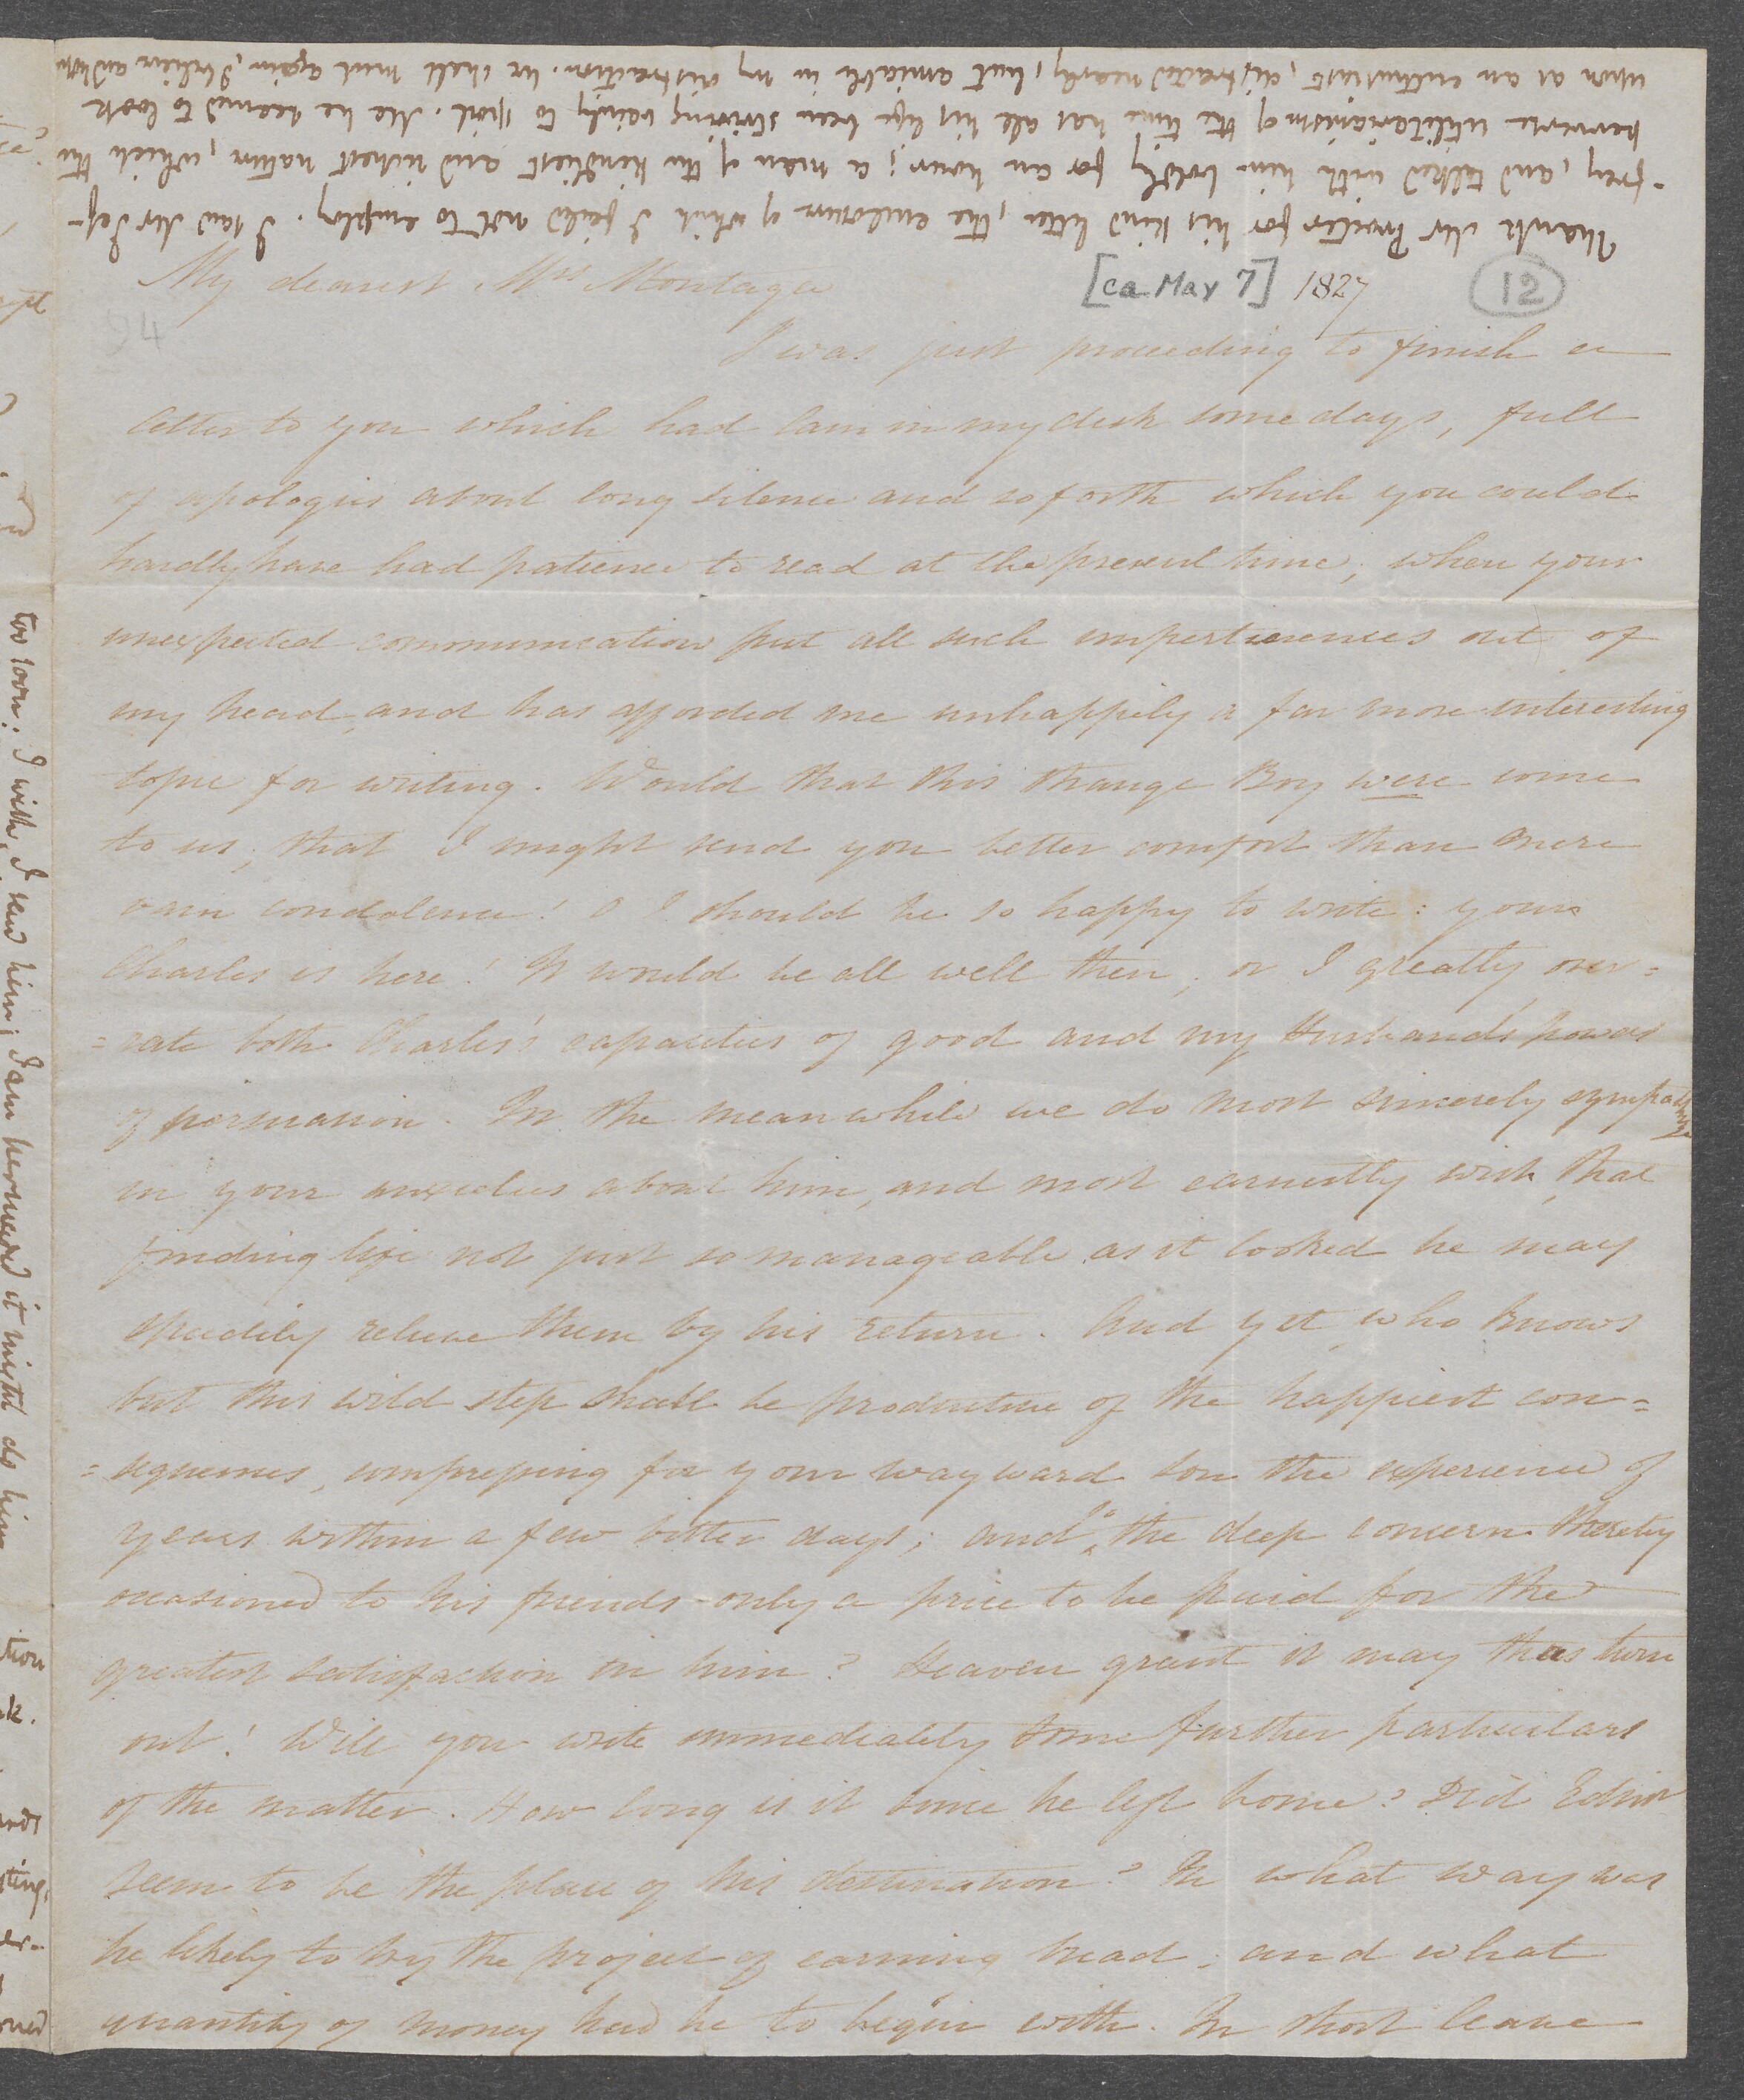 Thank Mr Procter for his kind letter, the enclosure of which I failed not to employ. I saw Mr Jef-
-frey, and talked with him boldly for an hour; a man of the kindliest and richest nature, which the
perverse utilitarianism of the time has all his life been striving vainly to spoil. Me he seemed to look
upon as an enthusiast, distracted nearly, but amiable in my distraction. We shall meet again, I believe and hope
My dearest Mrs Montagu
[ca May 7] 1827
12
94
I was just proceeding to finish a
letter to you which had lain in my desk some days, full
of apologies about long silence and so forth which you could
hardly have had patience to read at the present time; when your
unexpected communication put all such impertinences out of
my head, and has afforded me unhappily a far more interesting
topic for writing. Would that this strange Boy were come
to us; that I might send you better comfort than mere
vain condolence! O I should be so happy to write: your
Charles is here! It would be all well then; or I greatly over=
=rate both Charles's capacities of good and my Husband's powers
of persuasion. In the meanwhile we do most sincerely sympathize
in your anxieties about him, and most earnestly wish that
finding life not just so manageable as it looked he may
speedily relieve them by his return. And yet who knows
but this wild step shall be productive of the happiest con=
=sequences, compressing for your wayward son the experience of
years within a few bitter days; and the deep concern thereby
occasioned to his friends only a price to be paid for the
greatest satisfaction in him? Heaven grant it may thus turn
out! Will you write immediately some further particulars
of the matter. How long is it since he left home? Did Edinr
seem to be the place of his destination? In what way was
he likely to try the project of earning bread; and what
quantity of money had he to begin with. In short leave
too soon. I wish, I saw him; I am persuaded it might do him